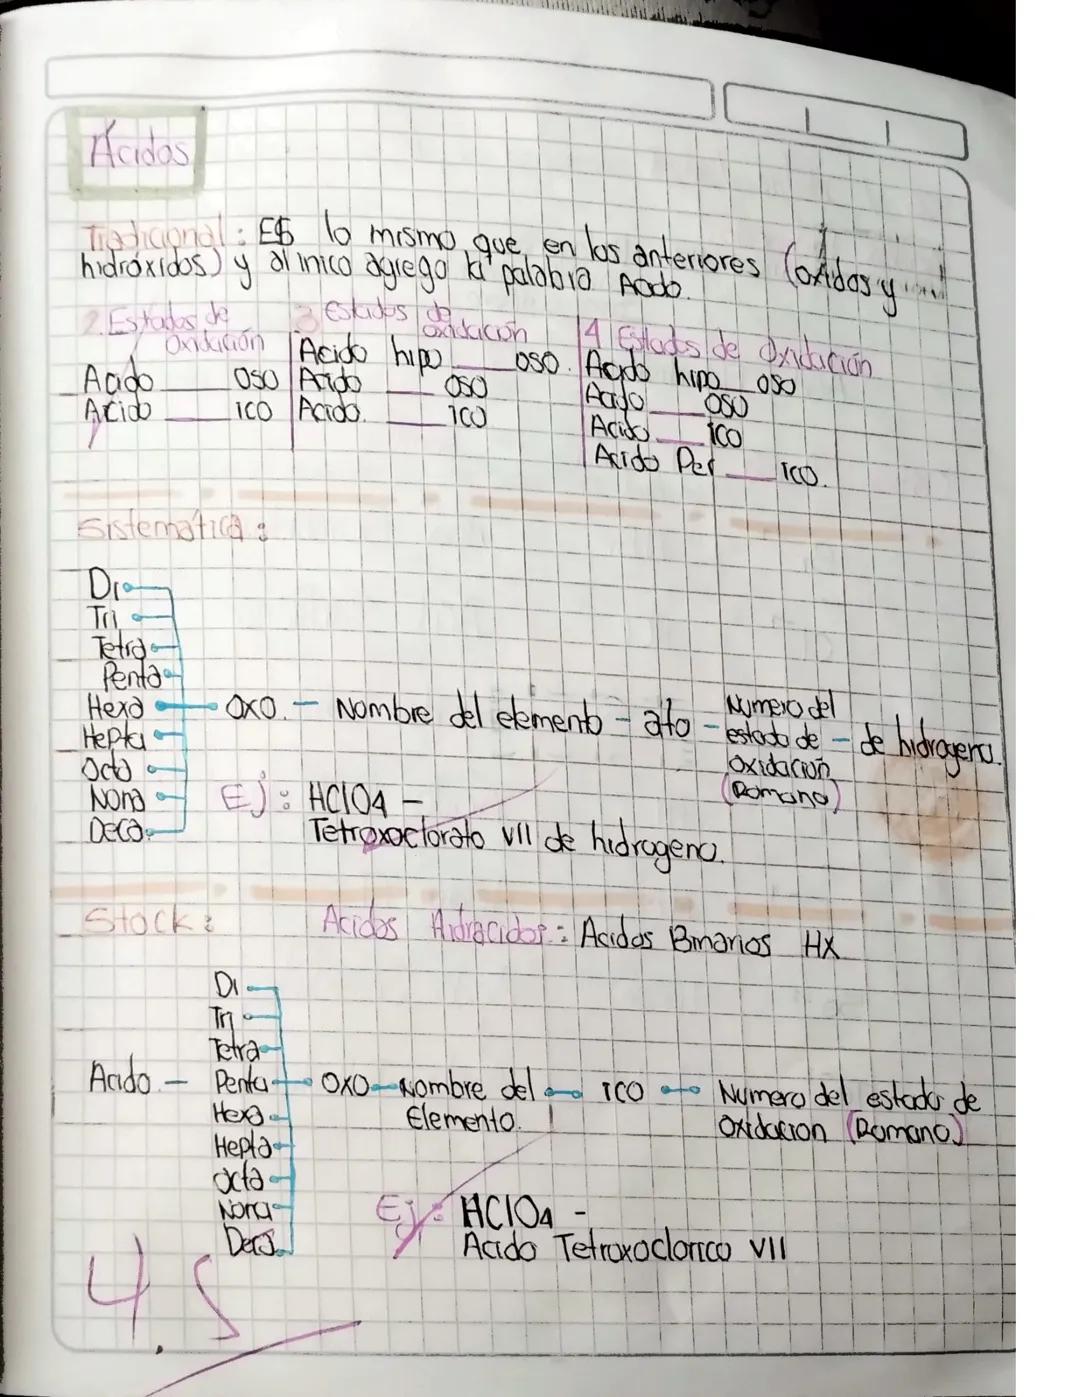 Ácidos
Tradicional: Es lo mismo que en los anteriores (oxidos y
hidróxidos) y al inico agrego la palabra Acido.
2. Estados de Oxidación
Acido ____ oso
Acido ____ ico
3 Estados de Oxidación
Acido hipo ____ oso.
Acido ____ oso
Acido. ____ ico
4 Estados de Oxidación
Acido hipo ____ oso
Acido ____ oso
Acido ____ ico
Acido Per ____ ico.
Sistematica:
Di
Tri
Tetra
Penta
Hexa - oxo. - Nombre del elemento - ato - Numero del estado de oxidación (Romano) - de hidrogeno.
Hepta
Octa
Nona
Deca.
Ej: HClO4 -
Tetroxoclorato VII de hidrogeno.
Stock: Acidos Hidracidos: Acidos Binarios HX
Di
Tri
Tetra
Acido - Penta - oxo - Nombre del Elemento. - ico - Numero del estado de Oxidacion (Romano)
Hexa
Hepta
octa
Nona
Deca.
Ej: HClO4 -
Acido Tetroxoclorico VII
4.5